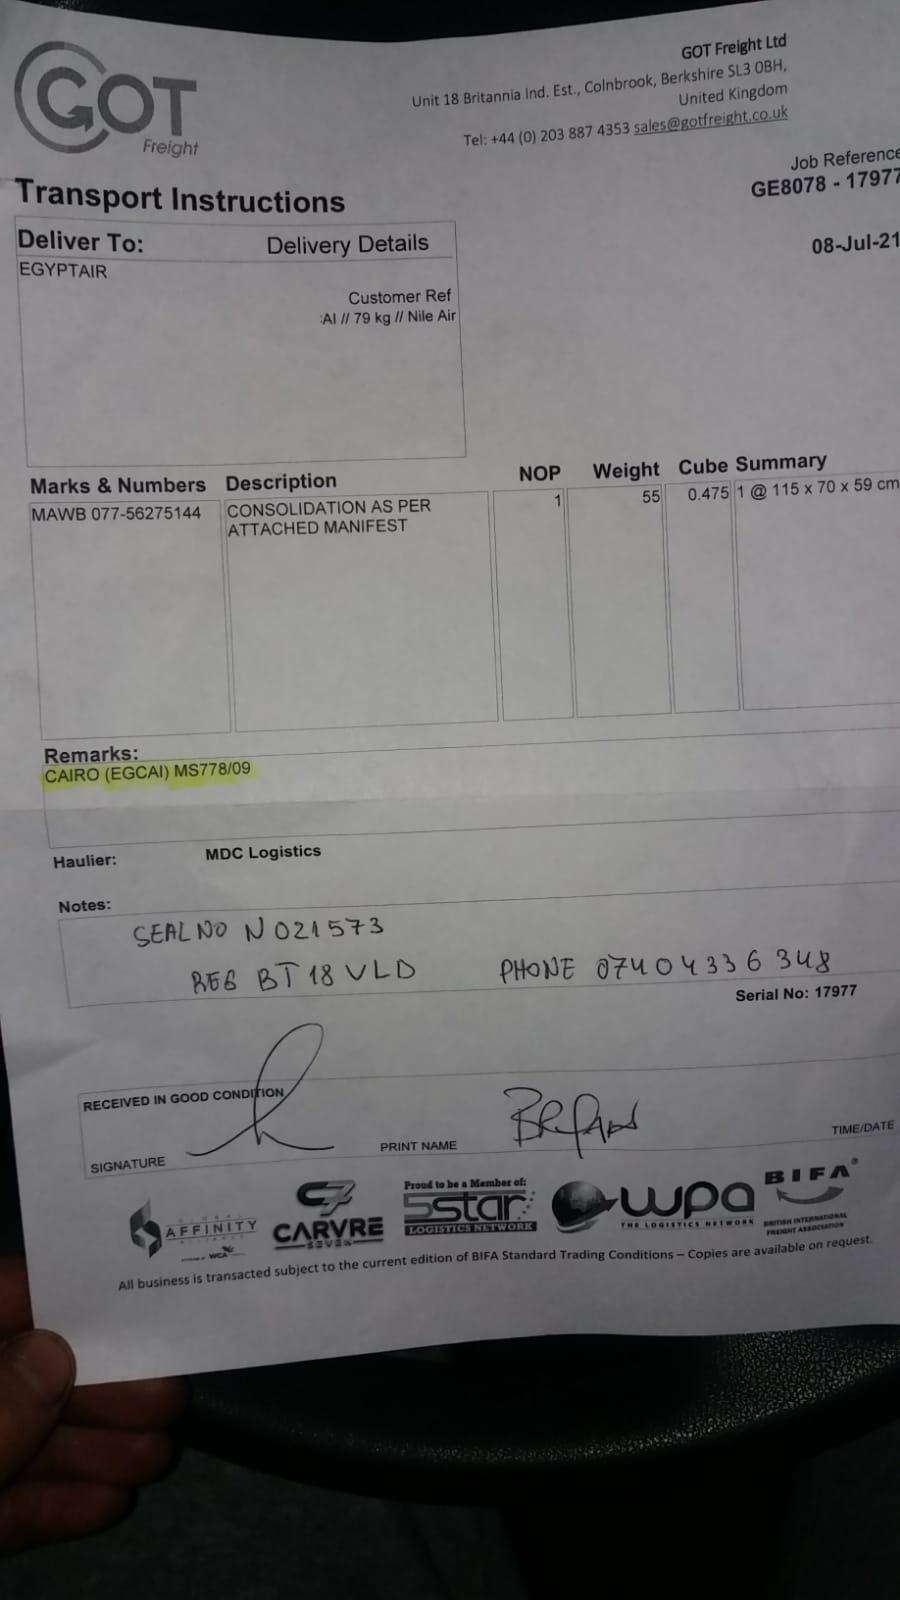 GOT
Freight
GOT Freight Ltd
Unit 18 Britannia Ind. Est., Colnbrook, Berkshire SL3 0BH,
United Kingdom
Tel: +44 (0) 203 887 4353 sales@gotfreight.co.uk
Job Reference
GE8078 - 17977
Transport Instructions
08-Jul-21
Deliver To: Delivery Details
EGYPTAIR
Customer Ref
:AI // 79 kg // Nile Air
Marks & Numbers Description NOP Weight Cube Summary
MAWB 077-56275144 CONSOLIDATION AS PER 1 55 0.475 1 @ 115 x 70 x 59 cm
ATTACHED MANIFEST
Remarks:
CAIRO (EGCAI) MS778/09
Haulier: MDC Logistics
Notes:
SEAL NO N021573
REG BT18 VLD PHONE 07404336348
Serial No: 17977
RECEIVED IN GOOD CONDITION
SIGNATURE PRINT NAME TIME/DATE
AFFINITY
WCA
C7
CARVRE
SEVEN
Proud to be a Member of:
5star
LOGISTICS NETWORK
wpa
THE LOGISTICS NETWORK
BIFA
BRITISH INTERNATIONAL
FREIGHT ASSOCIATION
All business is transacted subject to the current edition of BIFA Standard Trading Conditions – Copies are available on request.